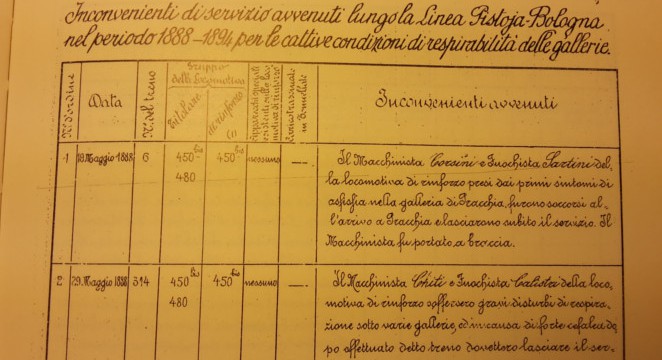 Inconvenienti di servizio avvenuti lungo la Linea Pistoja-Bologna
nel periodo 1888-1894 per le cattive condizioni di respirabilità delle gallerie.
N. d'ordine
Data
N. del treno
Gruppo
della Locomotiva
titolare
di rinforzo
(1)
Apparecchi speciali
esistenti nella loco
motiva di rinforzo
in Tonnellate
Inconvenienti avvenuti
1 18. Maggio 1888 6 450 bis 450 bis nessuno —
480
Il Macchinista Corsini e Fuochista Sartini del,
la locomotiva di rinforzo presi dai primi sintomi di
asfissia nella galleria di Pracchia, furono soccorsi al,
l'arrivo a Pracchia e lasciarono subito il servizio. Il
Macchinista fu portato a braccia.
2 29. Maggio 1888 314 450 bis 450 bis nessuno —
480
Il Macchinista Chiti e Fuochista Calistri della loco,
motiva di rinforzo soffersero gravi disturbi di respira,
zione sotto varie gallerie, ed in causa di forte cefalea do,
po effettuato detto treno dovettero lasciare il ser-